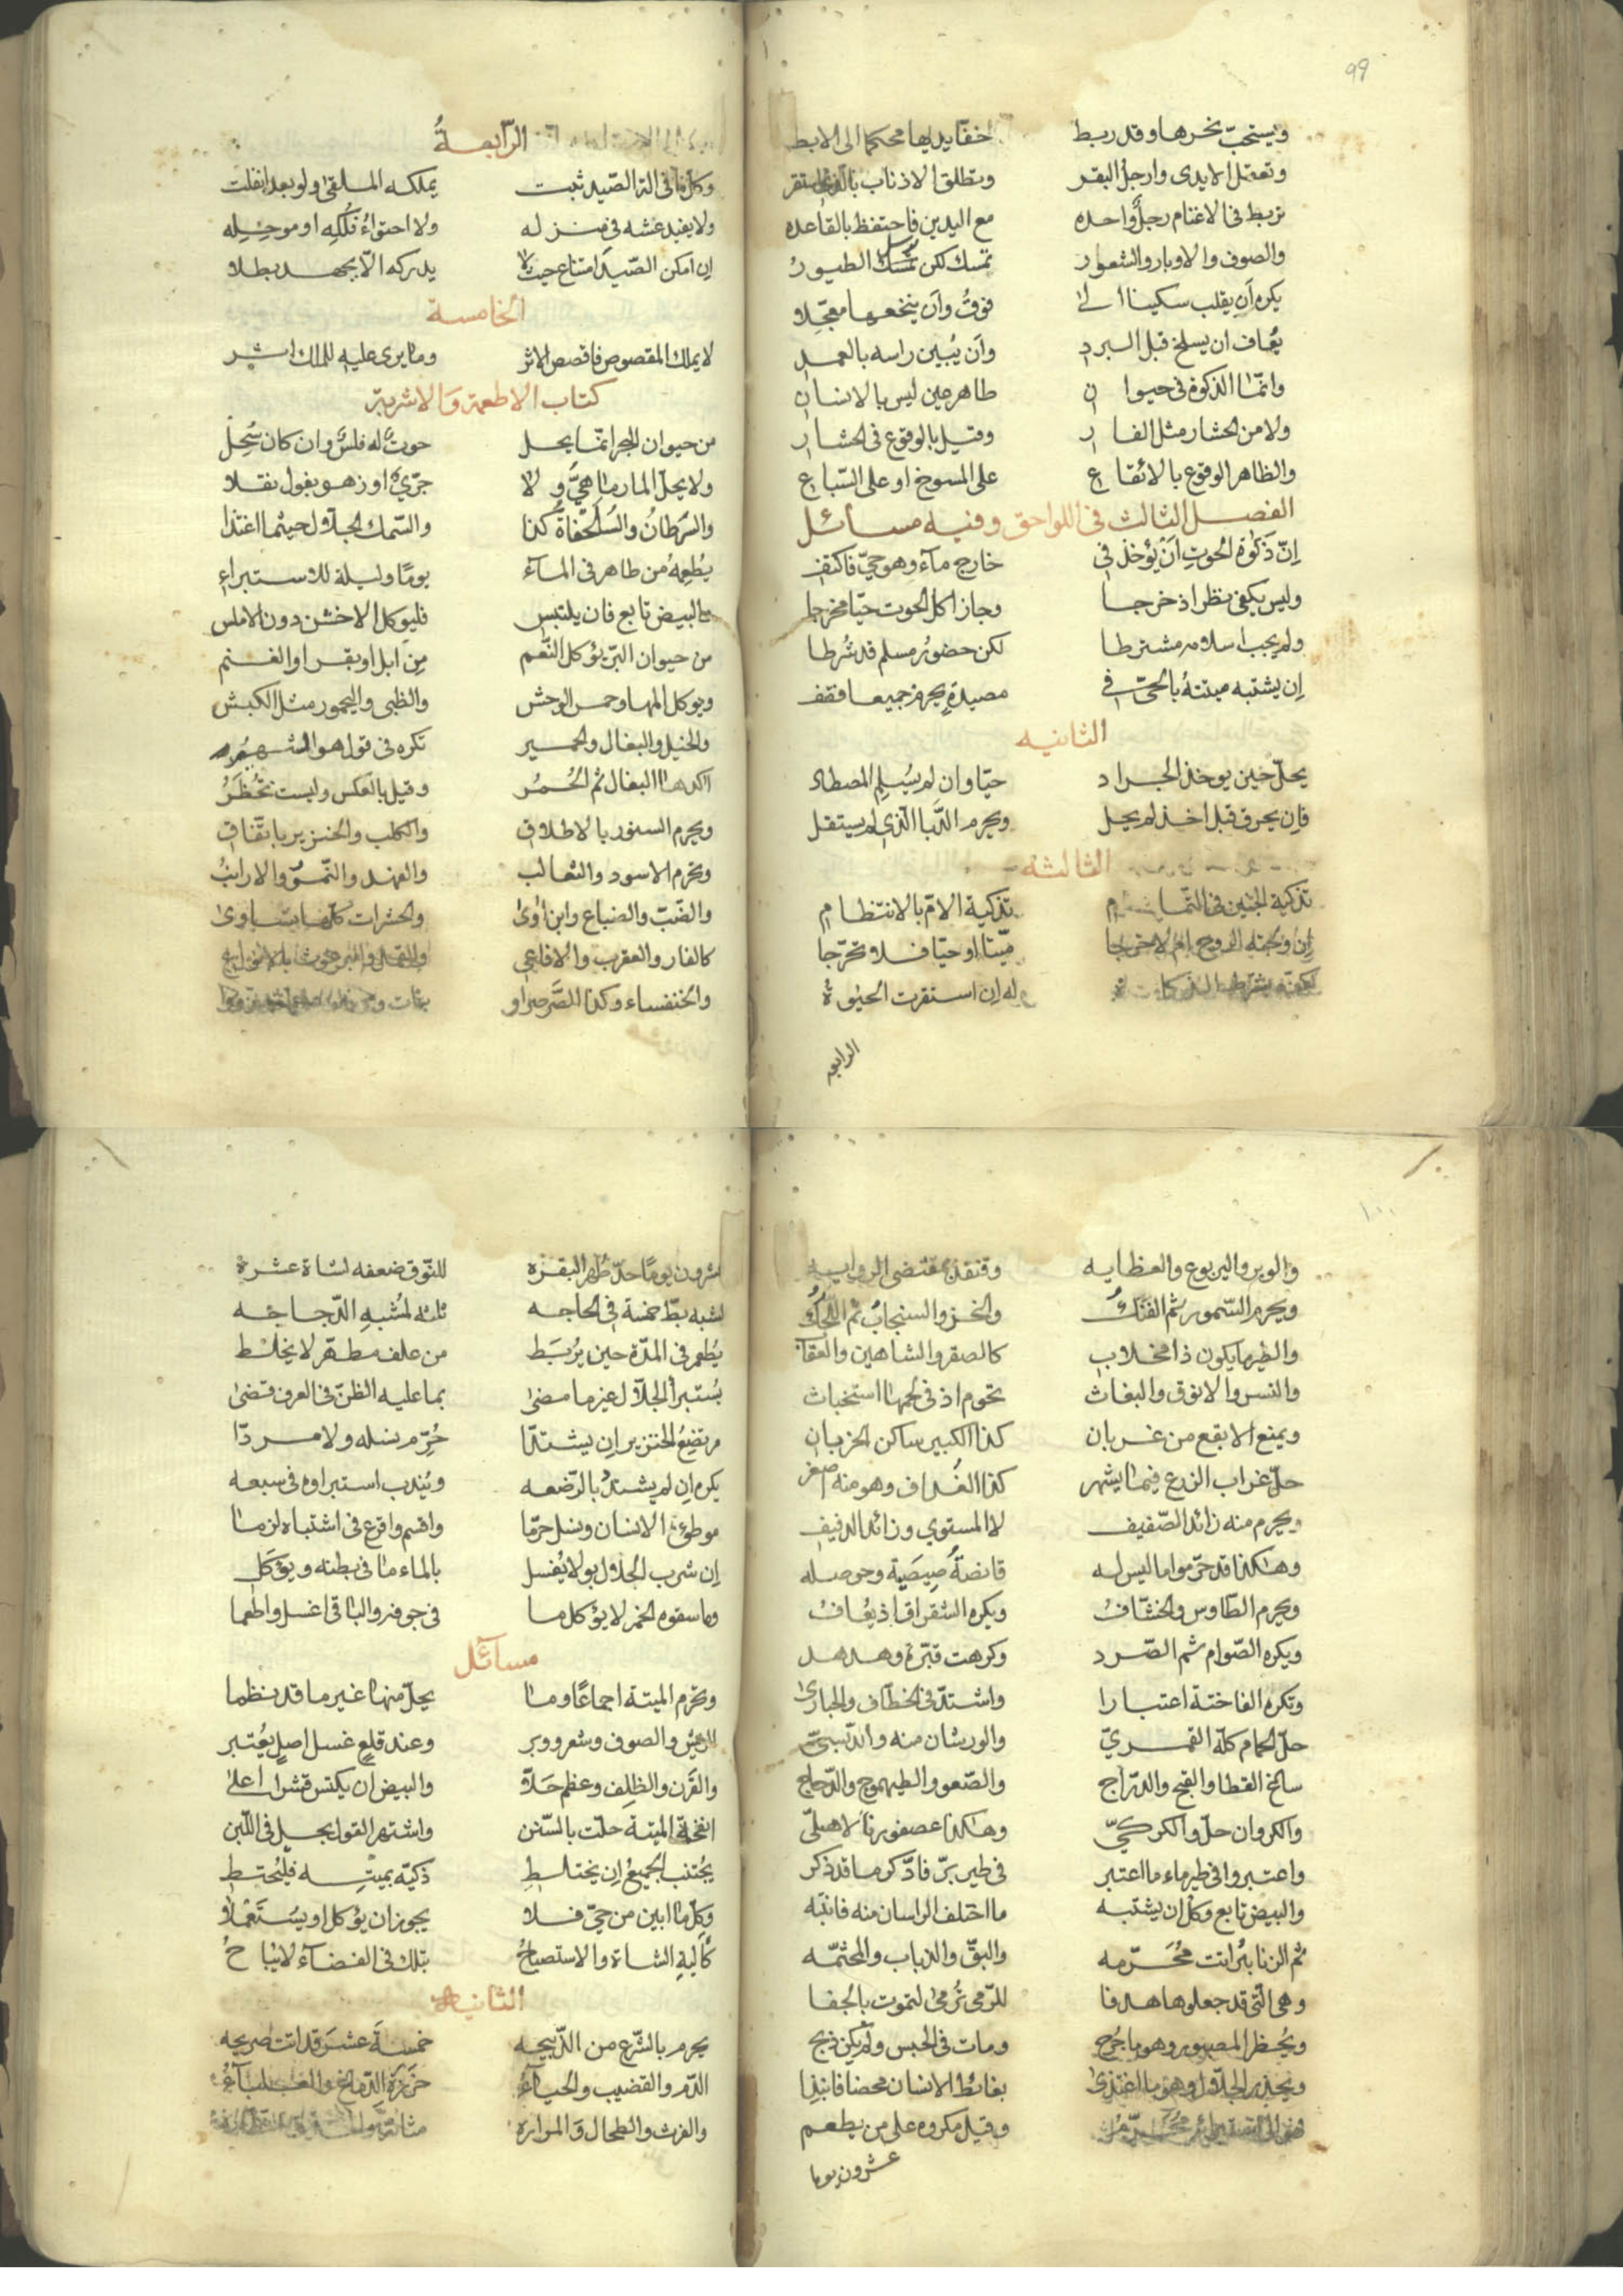 99
ويستحبّ نحرها وقد ربط اخفا يديها محكما الى الابط
وتعقل الايدى وارجل البقر وتطلق الاذناب
تربط فى الاغنام رجلٌ واحده مع اليدين فاحتفظ بالقاعده
والصوف والاوبار والشعور تمسك لكن ترسل الطيور
يكره ان يقلب سكينا الى فوقُ وان ينخعها معجّلا
يعاف ان يسلخ قبل البرد وان يُبين راسه بالعمد
وانّما الذكوة فى حيوان طاهر عين ليس بالانسان
ولا من الحشار مثل الفار وقيل بالوقوع فى الحشار
والظاهر الوقوع بالايقاع على المسوخ او على السّباع
الفصل الثالث فى اللواحق وفيه مسائل
انّ ذكوة الحوت ان يؤخذ فى خارج ماء وهو حىّ فاكتف
وليس يكفى نظر اذ خرجا وجاز اكل الحوت حيّا مخرجا
ولم يجب اسلامه مشترطا لكن حضورُ مسلم قد شُرطا
ان يشتبه ميتته بالحىّ فى مصيدةٍ يحرم جميعا فقف
الثانيه
يحلّ حين يوخذ الجراد حيّا وان لم يُسلم المصطاد
فان يحرق قبل اخذ لم يحل ويحرم الدَّبا الذى لم يستقل
الثالثة
تذكية الجنين فى التمام تذكية الام بالانتظام
ان ولجته الروح ام لا خرجا ميّتا او حيّا فلا تحرّجا
له ان استقرت الحيوة
الرابعه
الرّابعةُ
وكلّ ما فى الة الصّيد ثبت يملكه الملقى ولو بعد انفلت
ولا يفيد عشه فى منزله ولا احتواءُ فُلكِه او موحِلِه
ان امكن الصّيدَ امتناع حيث لا يدركه الّا بجهد بطلا
الخامسة
لا يملك المقصوص فاقصص الاثر وما يرى عليه للملك اثر
كتاب الاطعمة والاشربة
من حيوان البحر انّما يحل حوتٌ له فلسٌ وان كان سُحِل
ولا يحلّ المارماهىُّ ولا جرّىٌ او زهو بقول نقلا
والسَّرَطانُ والسُلَحْفاةُ كذا والسّمك الجلّال حيثما اغتذا
يُطعِمُه من طاهر فى الماء يومًا وليلة للاستبراء
والبيض تابع فان يلتبس فليوكل الاخشن دون الاملس
من حيوان البرّ يؤكل النَّعم مِن ابل او بقر او الغنم
ويوكل المها وحمر الوحش والظبى واليحمور مثل الكبش
والخيل والبغال والحمير تكره فى قول هو المشهور
اكدها البغال ثم الحُمُر وقيل بالعكس وليست تُحْظَرُ
ويحرم السنور بالاطلاق والكلب والخنزير باتّفاق
وتحرم الاسود والثعالب والفهد والنّمر والارانبُ
والضّبّ والضباع وابن اوى والحشرات كلّها تساوى
كالفار والعقرب والافاعى
والخنفساء وكذا الصّرصر او
والوبر واليربوع والعظايه وقنفذ بمقتضى الروايه
ويحرم السّمور ثم الفنكُ والخز والسنجابُ ثم اللُّحَكُ
والطير ما يكون ذا مخلاب كالصقر والشاهين والعقاب
والنسر والانوق والبغاث تحرم اذ فى لحمها استخباث
ويمنع الابقع من غربان كذا الكبير ساكن الخربان
حلّ غراب الزرع فيما يشهر كذا الغداف وهو منه اصغر
ويحرم منه زائد الصّفيف لا المستوى وزائد الدفيف
وهكذا قد حرّموا ما ليس له قانصةُ صِيصَية وحوصله
ويحرم الطّاوس والخشّافُ ويكره الشقراق اذ يُعافُ
ويكره الصّوام ثم الصّرد وكرهت قبّرة وهدهد
وتكره الفاختة اعتبارا واشتدّ فى الخطّاف والحبارى
حلّ الحمام كلّه القمرىّ والورشان منه والدّبسىّ
سانح القطا والقبج والدرّاج والصّعو والطيهوج والدّجاج
والكروان حلّ والكركىّ وهكذا عصفورنا الاهلىّ
واعتبروا فى طير ماء ما اعتبر فى طير برّ فادّكر ما قد ذكر
والبيض تابع وكل ان يشتبه ما اختلف الراسان منه فانتبه
ثم الزنابيرُ اتت مُحَرّمه والبقّ والذباب والمجثمه
وهى الّتى قد جعلوها هدفا للرّمى تُرمى لتموت بالجفا
ويُحظر المصبور وهو ما جُرح ومات فى الحبس ولم يكن ذبح
ويحذر الجلّال وهو ما اغتذى بغائط الانسان محضا فانبذا
وقيل مكروه على من يطعم
عشرون يوما
عشرون يومًا حدّ طُهر البقره للنّوق ضعفه لشاة عشرة
لشبه بطّ خمسة فى الحاجه ثلثه لمُشبهِ الدّجاجه
يُطعم فى المدّة حين يُربَط من علف مطهّر لا يخلط
يُستبرأ الجلّال غير ما مضى بما عليه الظنّ فى العرف قضى
مرتضِعُ الخنزير ان يشتدّا حُرّم نسله ولا مردّا
يكره ان لم يشتدّ بالرّضعه ويُندب استبراوه فى سبعه
موطوءة الانسان ونسل حرّما واقسم واقرع فى اشتباه لزما
ان شرب الجلال بولا يُغسل بالماء ما فى بطنه ويؤكل
وما سقوه الخمر لا يؤكل ما فى جوفه والباقى اغسل واطعما
مسائل
وتحرم الميتة اجماعًا وما يحلّ منها غير ما قد نظما
الريش والصوف وشعر ووبر وعند قلعٍ غسل اصلٍ يُعتبر
والقَرن والظِلف وعظم حَلّا والبيض ان يكتس قشرا اعلى
انفحة الميتة حلت بالسّنن واشتهر القول بحل فى اللّبن
يُجتنب الجميعُ ان يختلطِ ذكيّه بميتِه فليُحتط
وكلّ ما ابين من حىّ فلا يجوز ان يؤكل او يستعملا
كألية الشاة والاستصباحُ بتلك فى الفضاء لا يباحُ
الثانية
يحرم بالشّرع من الذّبيحه خمسةَ عشرَ قد اتت صريحه
الدّم والقضيب والحياءُ خرزة الدّماغ والعلباءُ
والفرث والطحال والمراره